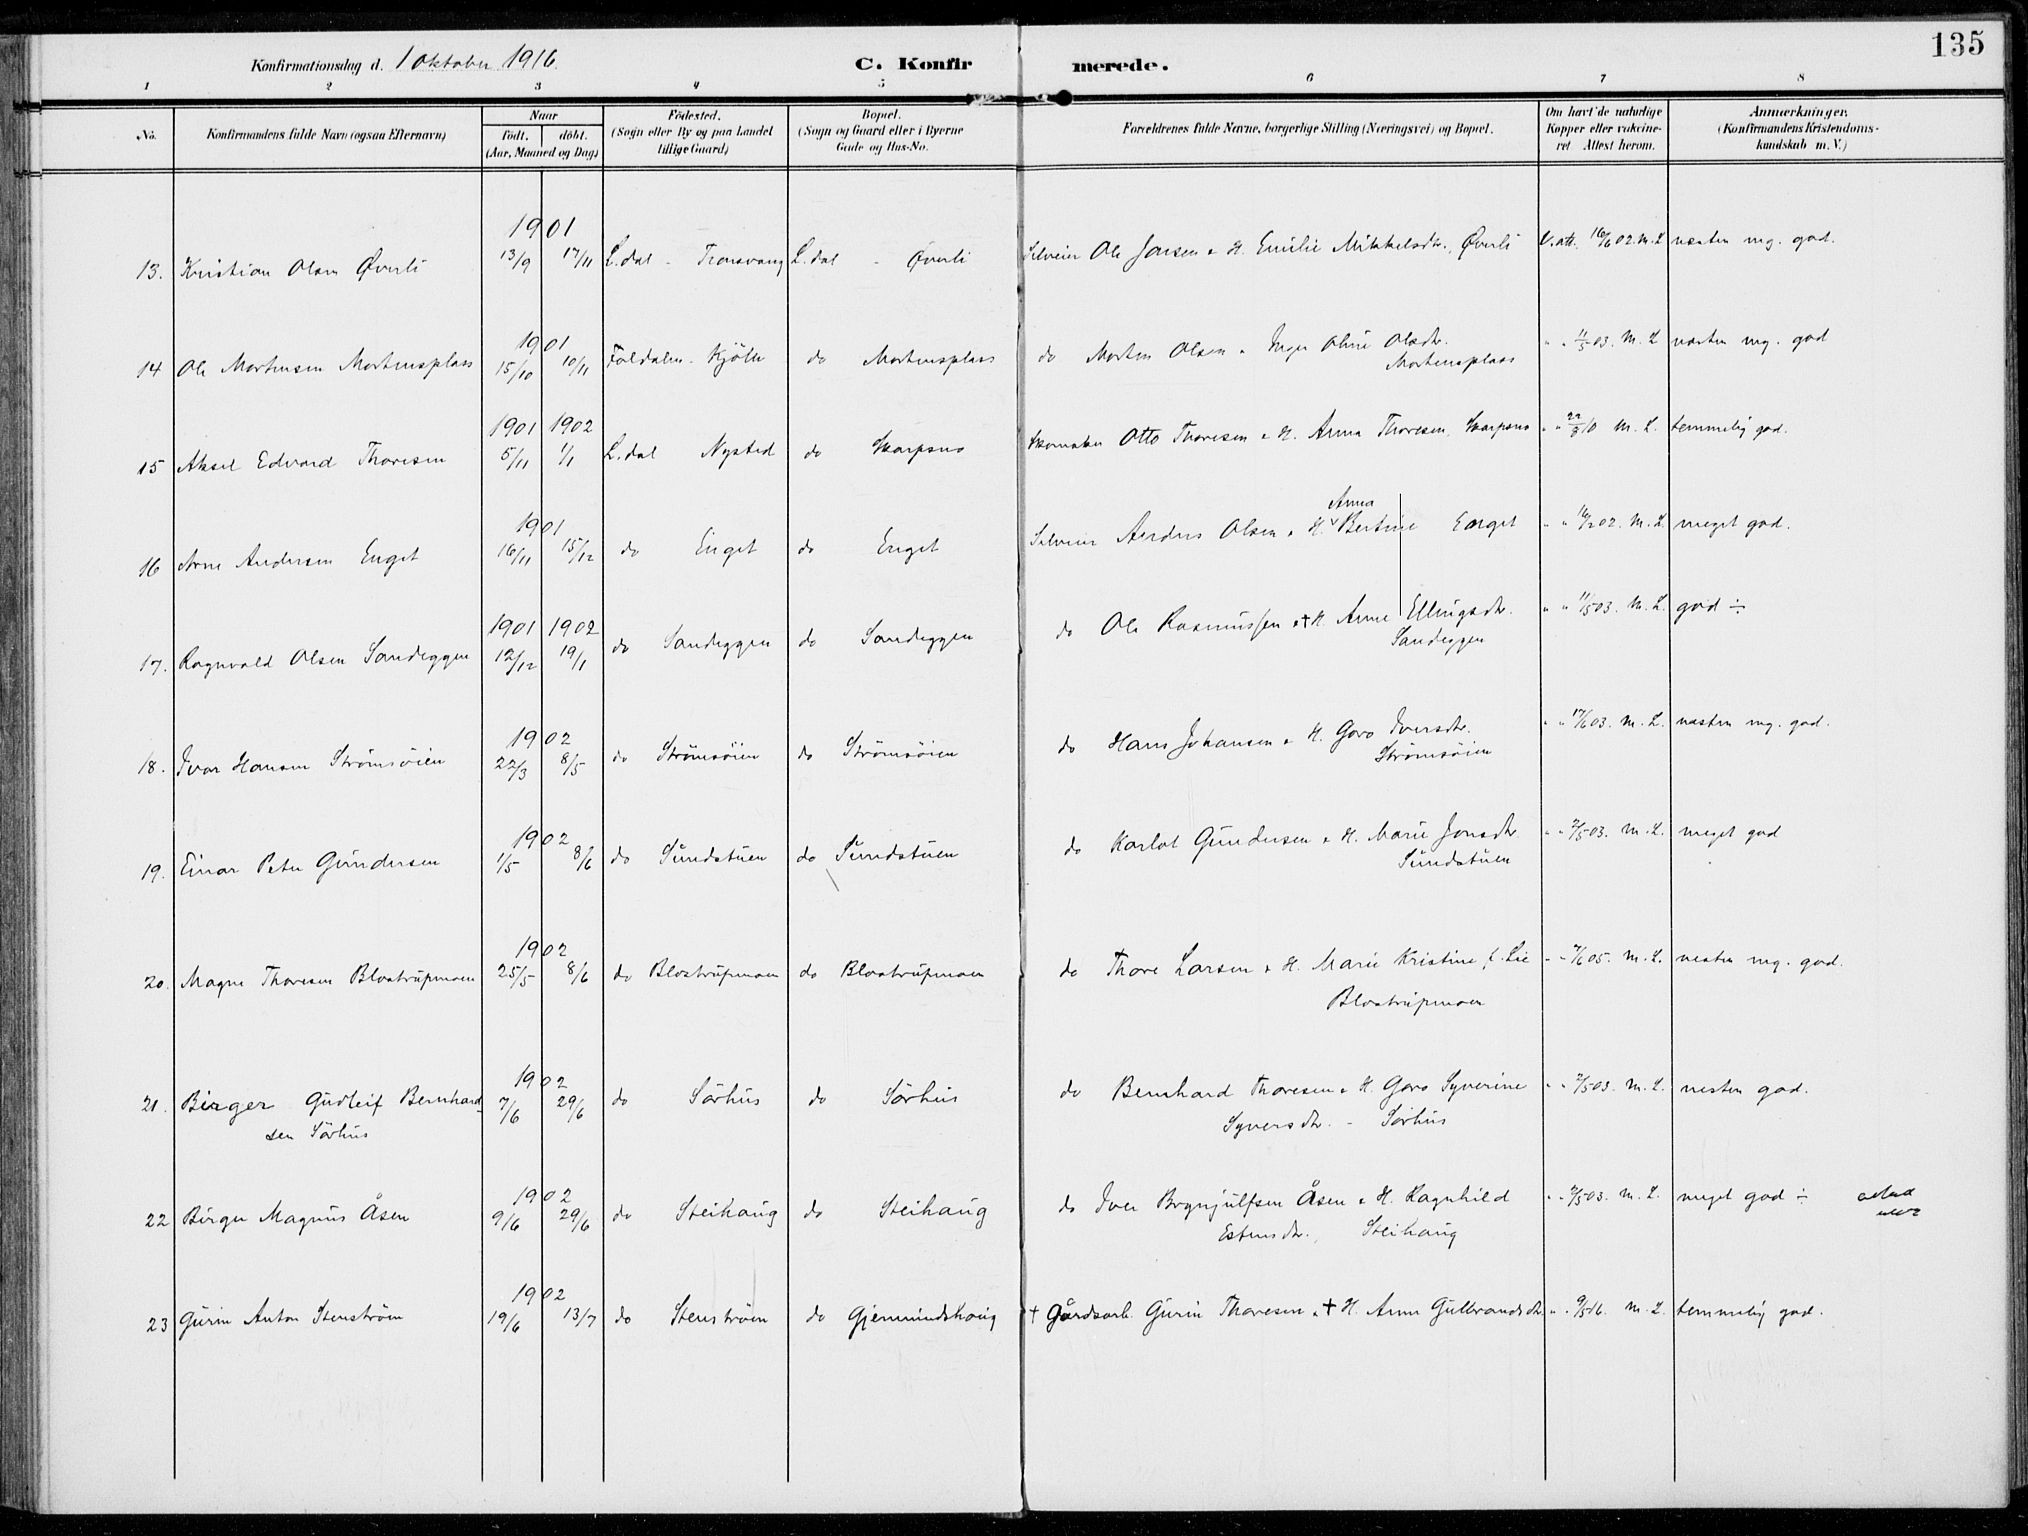 135
Konfirmationsdag d. 1 Oktober 1916.
C. Konfirmerede.
1 2 3 4 5 6 7 8
No.
Konfirmandens fulde Navn (ogsaa Efternavn)
Naar
født. døbt.
(Aar, Maaned og Dag)
Fødested.
(Sogn eller By og paa Landet
tillige Gaard)
Bopæl.
(Sogn og Gaard eller i Byerne
Gade og Hus-No.
Forældrenes fulde Navne, borgerlige Stilling (Næringsvei) og Bopæl.
Om havt de naturlige
Kopper eller vakcine-
ret Attest herom.
Anmærkninger.
(Konfirmandens Kristendoms-
kundskab m. V.)
1901
13. Kristian Olsen Øverli 13/9 17/11 L.dal - Tronsvang L.dal - Øverli Selveier Ole Jonsen & H. Emilie Mikkelsdr., Øverli V. att. 16/6 02. M. L. næsten mg. god.
1901
14 Ole Mortensen Mortensplass 15/10 10/11 Foldalen - Kjölle do Mortensplass do Morten Olsen & Inger Oline Olsdr. " " 11/5 03. M. L næsten mg. god
Mortensplass
1901 1902
15 Aksel Edvard Thoresen 5/11 1/1 L.dal Nysted do Skarpsno Skomaker Otto Thoresen & H. Anna Thoresen, Skarpsno " " 22/3 10 M. L. temmelig god.
Anna
1901
16 Arne Andersen Enget 16/11 15/12 do Enget do Enget Selveier Anders Olsen & H. Bertine Enget " " 16/2 02. M. L. meget god.
1901 1902
17. Ragnvald Olsen Sandeggen 12/12 19/1 do Sandeggen do Sandeggen do Ole Rasmussen & † H. Anne Ellingsdr. " " 11/5 03. M. L. god ÷
Sandeggen
1902
18. Ivar Hansen Strømsøien 22/3 8/5 do Strømsøien do Strømsøien do Hans Johansen & H. Goro Iversdr. " " 17/6 03. M. L. næsten mg. god.
Strømsøien
1902
19. Einar Peter Gundersen 1/5 8/6 do Sundstuen do Sundstuen do Karlot Gundersen & H. Marie Jonsdr. " " 2/5 03. M. L. meget god
Sundstuen
1902
20. Magne Thoresen Blostrupmoen 25/5 8/6 do Blostrupmoen do Blostrupmoen do Thore Larsen & H. Marie Kristine f. Lie " " 7/6 05. M. L. nesten mg. god.
Blostrupmoen
1902
21. Birger Gudleif Bernhard- 7/6 29/6 do Sörhus do Sörhus do Bernhard Thoresen & H. Goro Syverine " " 2/5 03. M. L. nesten god.
sen Sörhus Syversdr. - Sörhus
1902
22 Birger Magnus Åsen 9/6 29/6 do Steihaug do Steihaug do Iver Brynjulfsen Åsen & H. Ragnhild " " 2/5 03. M. L. meget god ÷
Estensdr., Steihaug
1902
23 Gurin Anton Stenstrøen 19/6 13/7 do Stenstrøen do Gjermundshaug † Gårdsarb. Gurin Thoresen & † H. Anne Gulbrandsdr. " " 9/5 06. M. L. temmelig god.